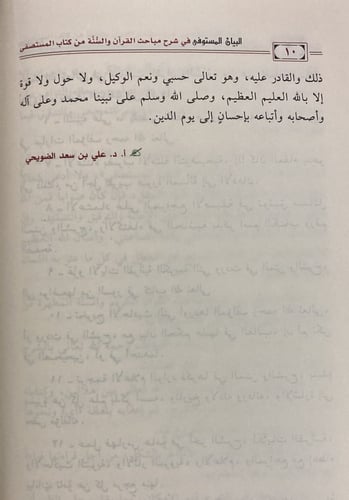 البيان المستوفى في شرح مباحث القرآن والسُّنَّة من كتاب المستصفى
١٠
ذلك والقادر عليه، وهو تعالى حسبي ونعم الوكيل، ولا حول ولا قوة
إلا بالله العليم العظيم، وصلى الله وسلم على نبينا محمد وعلى آله
وأصحابه وأتباعه بإحسانٍ إلى يوم الدين.
أ. د. علي بن سعد الضويحي